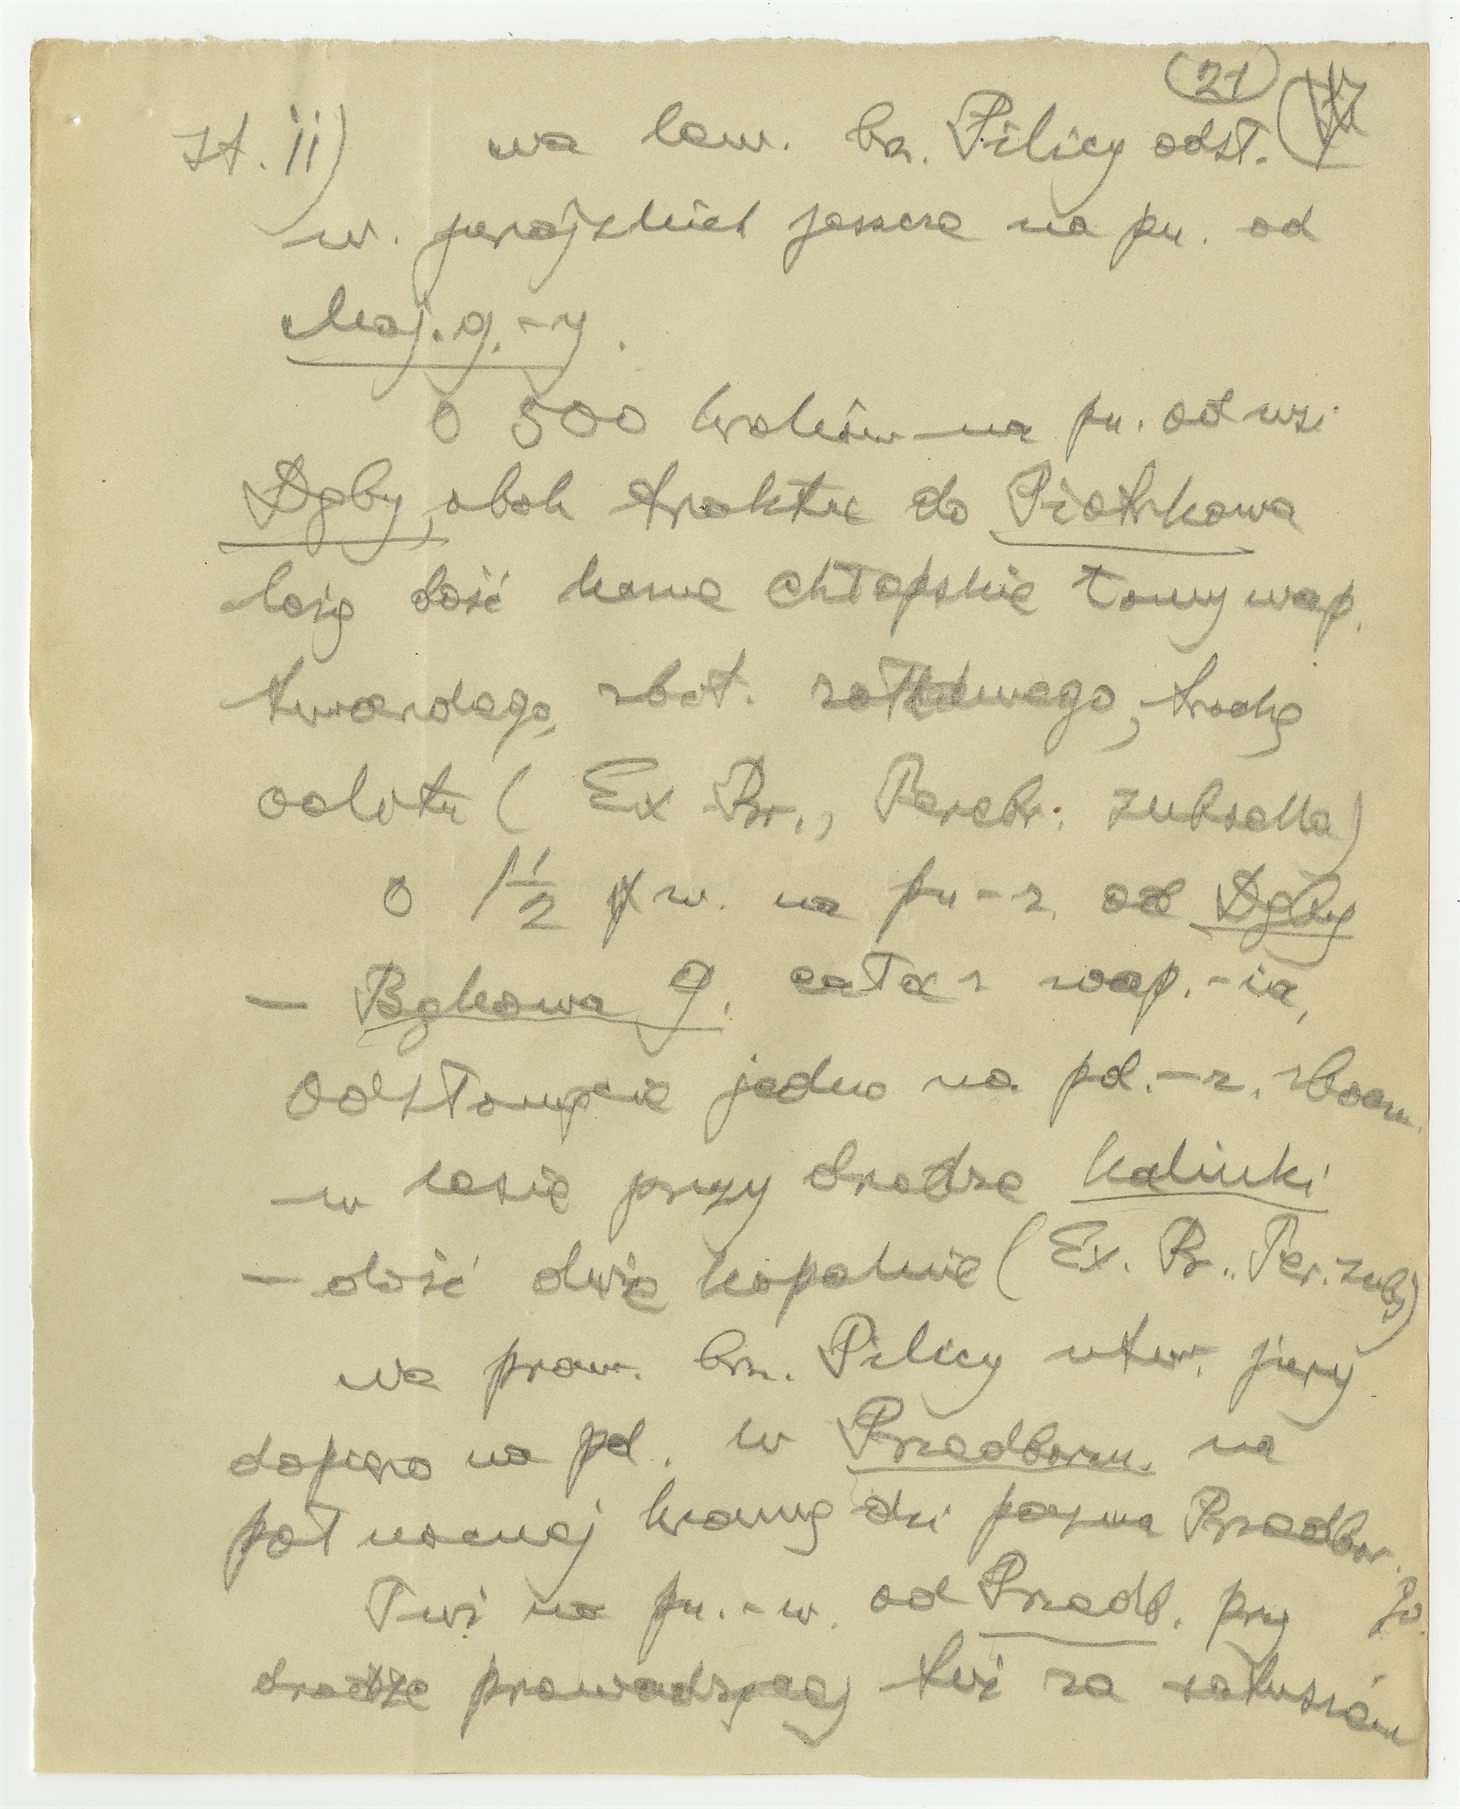 (21)
st. ii) na lew. brz. Pilicy odst.
w. jurajskich jeszcze na pn. od
Maj. g.-y.
0 500 kroków na pn. od wsi
Dęby, obok traktu do Piotrkowa
leżą dość dawne chłopskie łomy wap.
twardego, zbit. żółtawego, trochę
oolitu (Ex Br., Terebr. subsella)
0 1 1/2 w. na pn-z. od Dęby
- Bąkowa G. cała z wap.-ia,
Odsłonięcie jedno na pd.-z. zboczu
w lesie przy drodze Kalinki
- dość duże kopalnie (Ex. Br., Ter. subs)
na praw. brz. Pilicy utw. jury
dopiero na pd. w Przedborzu na
północnej krawędzi pasma Przedbor.
Tuż na pn.-w. od Przedb. przy
drodze prowadzącej tuż za ratuszem